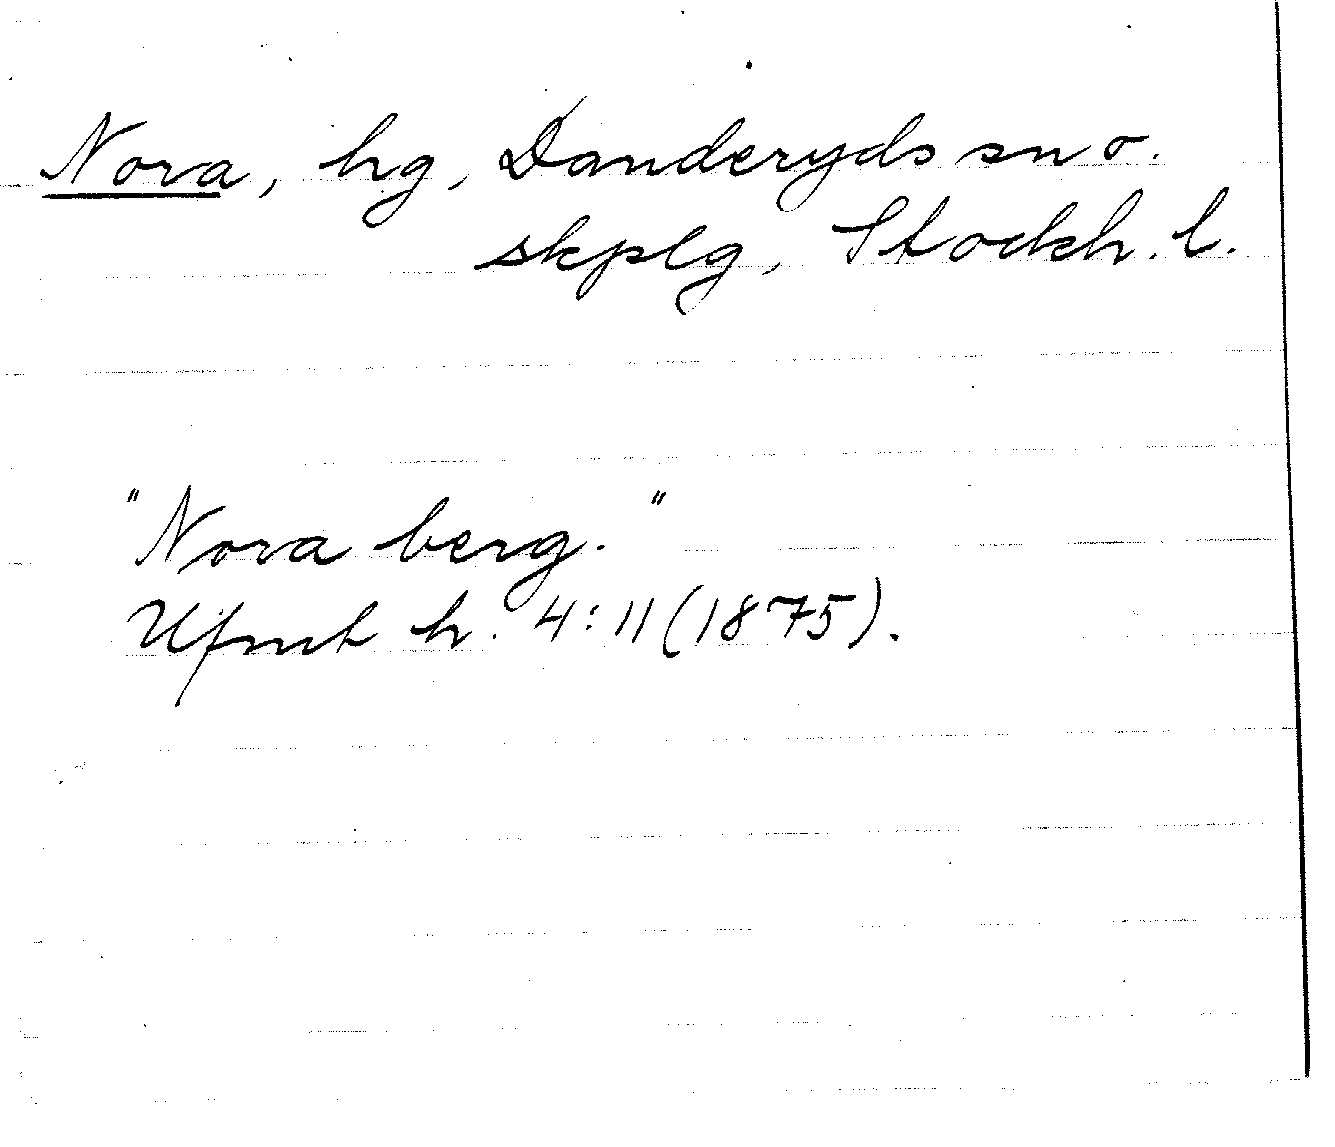 Nora, hg, Danderyds sn o.
skplg, Stockh. l.
"Nora berg."
Ufmt h. 4:11 (1875).